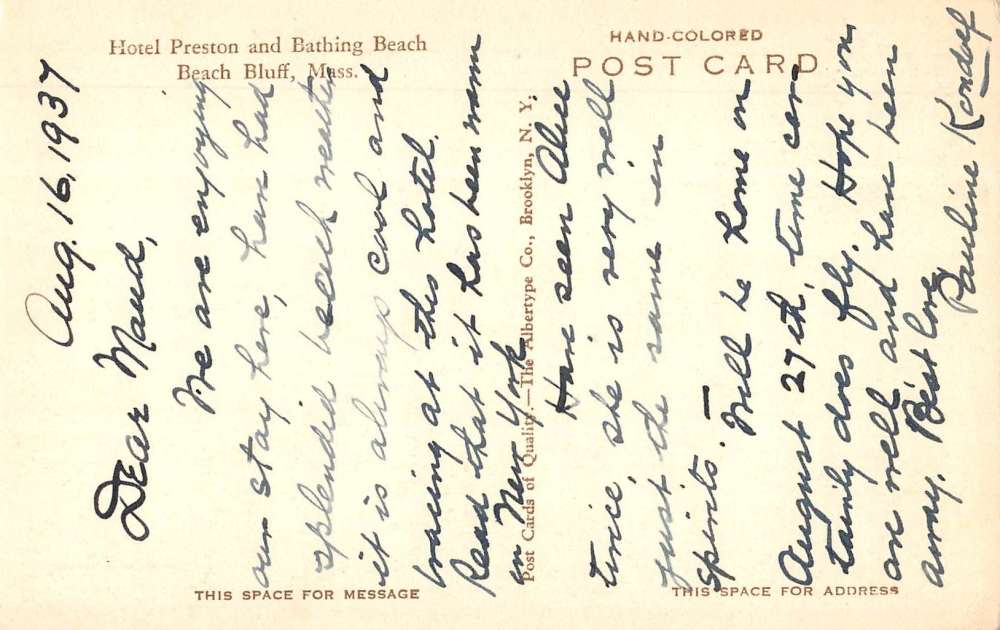 Hotel Preston and Bathing Beach
Beach Bluff, Mass.
HAND-COLORED
POST CARD
Post Cards of Quality.—The Albertype Co., Brooklyn, N. Y.
Aug. 16, 1937
Dear Maud,
We are enjoying
our stay here, have had
splendid beach weather
it is always cool and
bracing at this hotel.
Read that it has been warm
in New York
Have seen Alice
twice, she is very well
just the same in
spirits. —
Will be home on
August 27th, time cer
tainly does fly. Hope you
are well and have been
away. Best love
Pauline
THIS SPACE FOR MESSAGE
THIS SPACE FOR ADDRESS